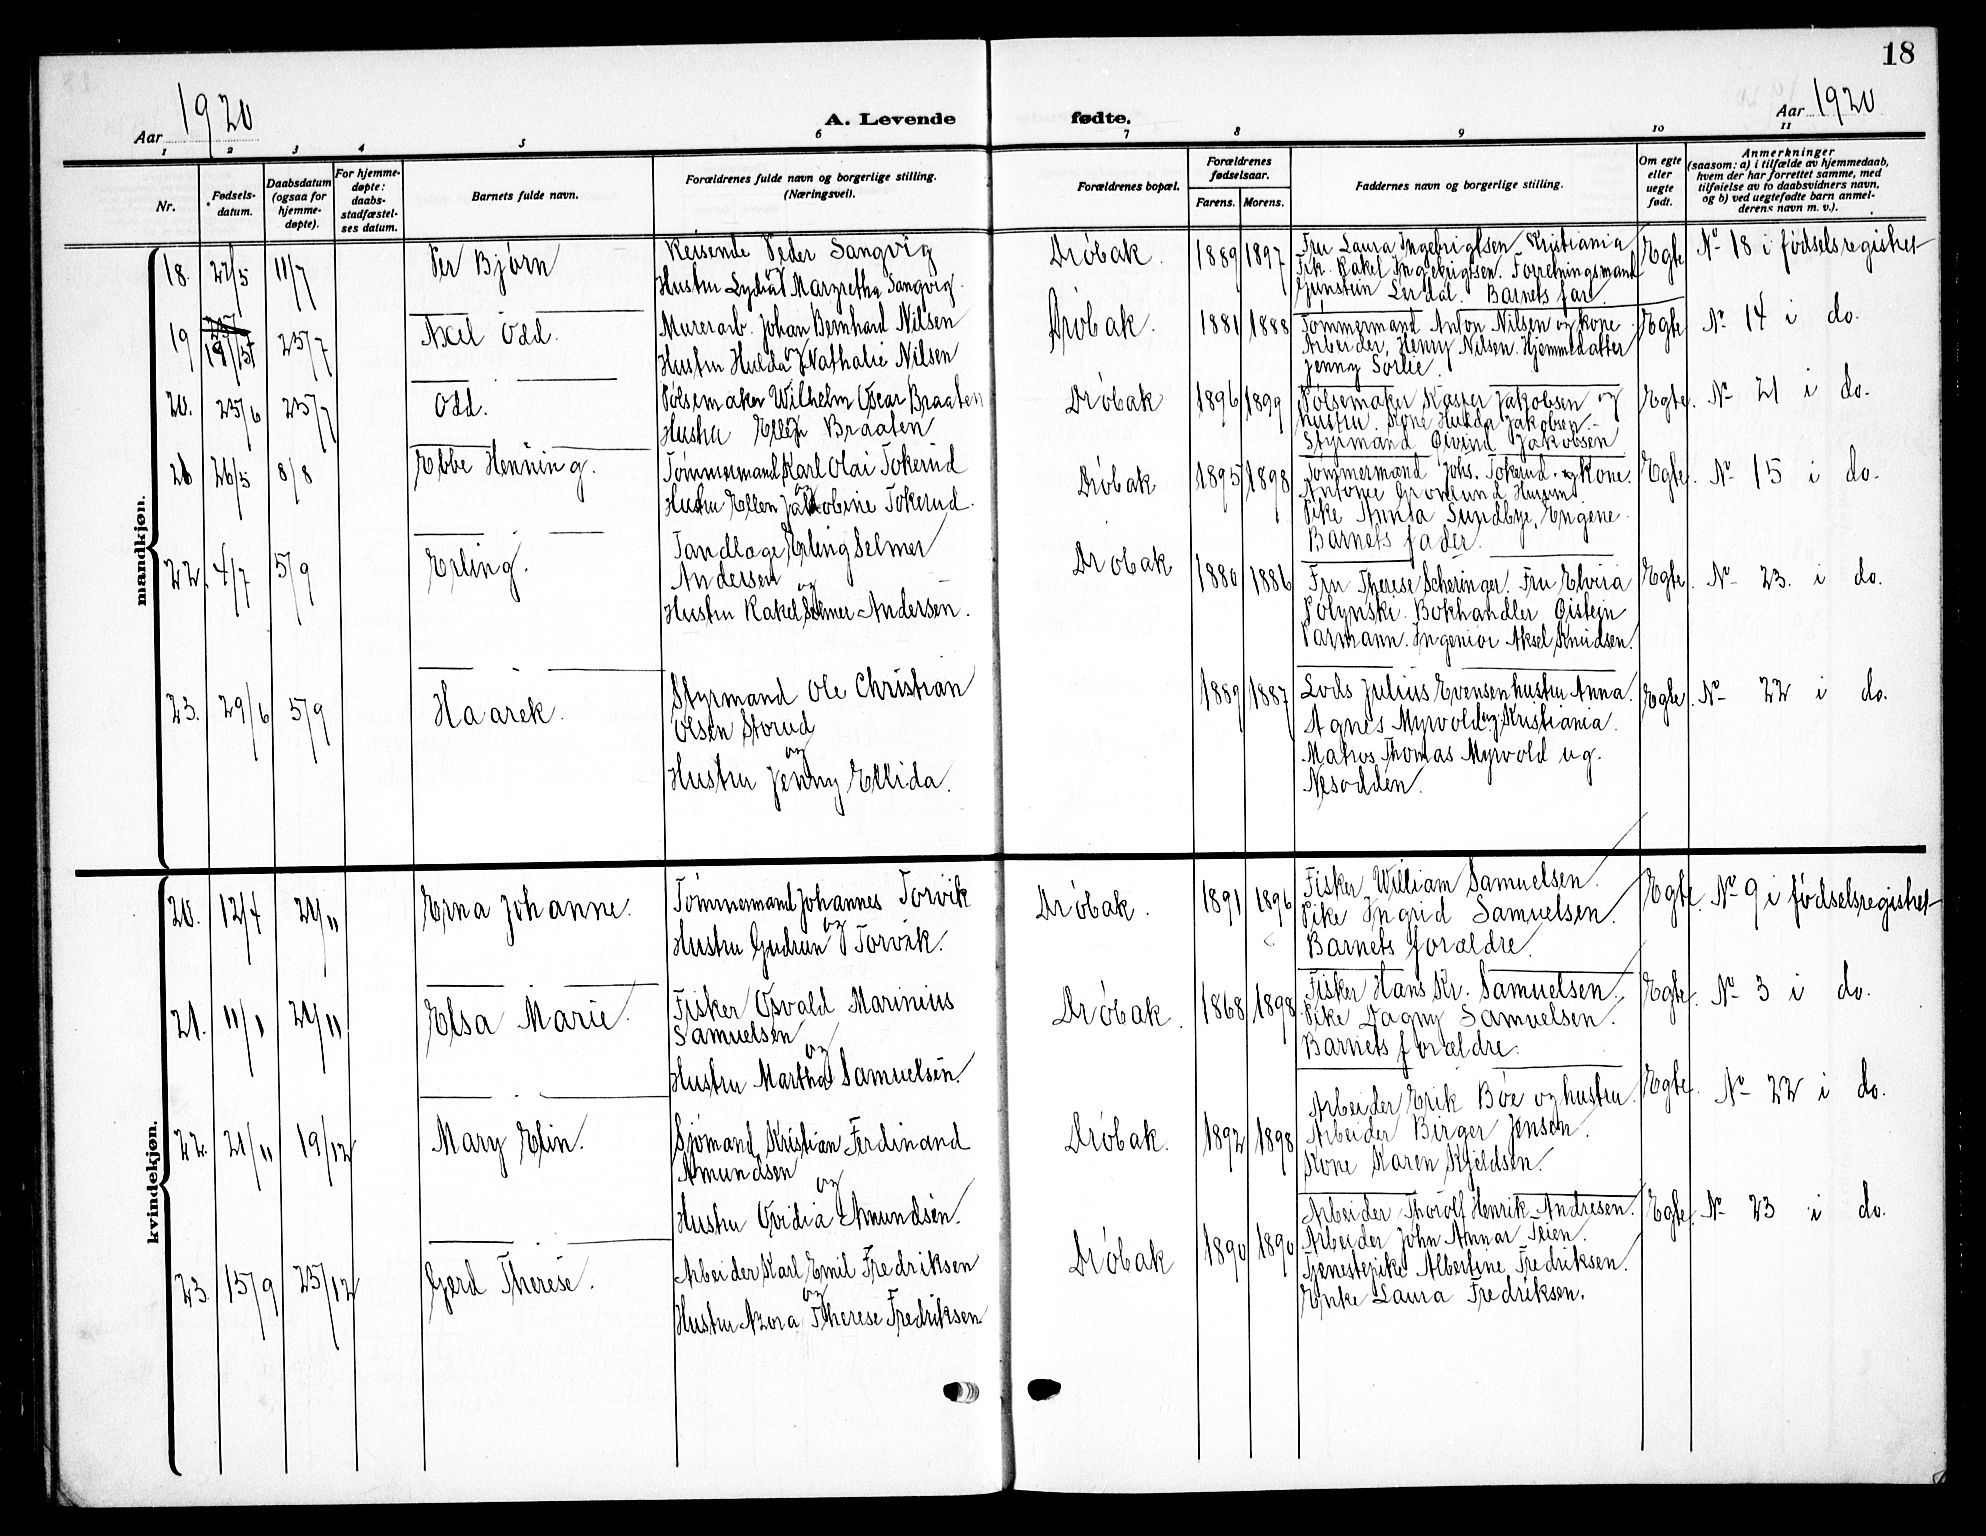 18
Aar 1920 A. Levende fødte. Aar 1920
1 2 3 4 5 6 7 8 9 10 11
Nr. Fødsels-datum. Daabsdatum (ogsaa for hjemme-døpte). For hjemme-døpte: daabs-stadfæstel-ses datum. Barnets fulde navn. Forældrenes fulde navn og borgerlige stilling. (Næringsvei). Forældrenes bopæl. Forældrenes fødselsaar. Farens. Morens. Faddernes navn og borgerlige stilling. Om egte eller uegte født. Anmerkninger (saasom: a) i tilfælde av hjemmedaab, hvem der har forrettet samme, med tilføielse av to daabsvidners navn, og b) ved uegtefødte barn anmel-derens navn m. v.).
mandkjøn.
18. 22/5 11/7 Per Bjørn Reisende Peder Sangvig Drøbak. 1889 1897 Fru Laura Ingebrigtsen Kristiania Egte No 18 i fødselsregistret
og
Hustru Lydia Margretha Sangvig. Frk. Rakel Ingebrigtsen. Forretningsmand
Gunstein Lerdal. Barnets far.
19 19/5 25/7 Axel Odd. Murerarb. Johan Bernhard Nilsen Drøbak. 1881 1888 Tømmermand Anton Nilsen og kone. Egte No 14 i do.
og
Hustru Hulda Nathalie Nilsen Arbeider, Henry Nilsen. Hjemmedatter
Jenny Sørlie.
20. 25/6 25/7 Odd. Pølsemaker Wilhelm Oscar Braaten Drøbak 1896 1899 Pølsemaker Kasper Jakobsen og Egte. No 21 i do.
Hustru Ellen Braaten hustru. Kone Hulda Jakobsen.
Styrmand Øivind Jakobsen
26/5 8/8 Ebbe Henning. Tømmermand Karl Olai Tokerud Drøbak 1895 1898 Tømmermand Johs. Tokerud. og Kone. Egte. No 15 i do.
og
Hustru Ellen Jakobine Tokerud. Antonie Grønlund Husum.
Pike Anna Sundbye, Engene.
Barnets fader.
22. 4/7 5/9 Erling. Tandlæge Erling Selmer Drøbak 1880 1886 Fru Therese Scheringer. Fru Elvira Egte. No 23. i do.
Andersen
og
Hustru Rakel Selmer-Andersen. Polynski. Bokhandler Øistein
Parmann. Ingeniør Aksel Knudsen.
23. 29/6 5/9 Haarek. Styrmand Ole Christian 1889 1887 Lods Julius Evensen hustru Anna. Egte. No 22 i do.
Olsen Storud
og
Hustru Jenny Ellida. Agnes Myrvold ug. Kristiania.
Matros Thomas Myrvold ug.
Nesodden.
kvindekjøn.
20. 12/7 21/11 Erna Johanne. Tømmermand Johannes Torvik Drøbak. 1891 1896 Fisker William Samuelsen. Egte. No 9 i fødselsregistret
og
Hustru Gudrun Torvik. Pike Ingrid Samuelsen.
Barnets forældre.
21. 11/1 21/11 Elsa Marie. Fisker Osvald Marinius Drøbak. 1868 1898 Fisker Hans Kr. Samuelsen. Egte. No 3 i do.
Samuelsen
og
Hustru Martha Samuelsen. Pike Dagny Samuelsen.
Barnets forældre.
22. 21/11 19/12 Mary Elin. Sjømand Kristian Ferdinand Drøbak. 1892 1898 Arbeider Erik Bøe og hustru. Egte. No 22 i do.
Amundsen
og
Hustru Ovidia Amundsen. Arbeider Birger Jensen.
Kone Karen Kjeldsen.
23. 15/9 25/12 Gerd Therese. Arbeider Karl Emil Fredriksen Drøbak 1890 1890 Arbeider Thorolf Henrik Andresen. Egte. No 23 i do.
og
Hustru Azora Therese Fredriksen Arbeider John Annar Teien.
Tjenestepike Albertine Fredriksen.
Enke Laura Fredriksen.